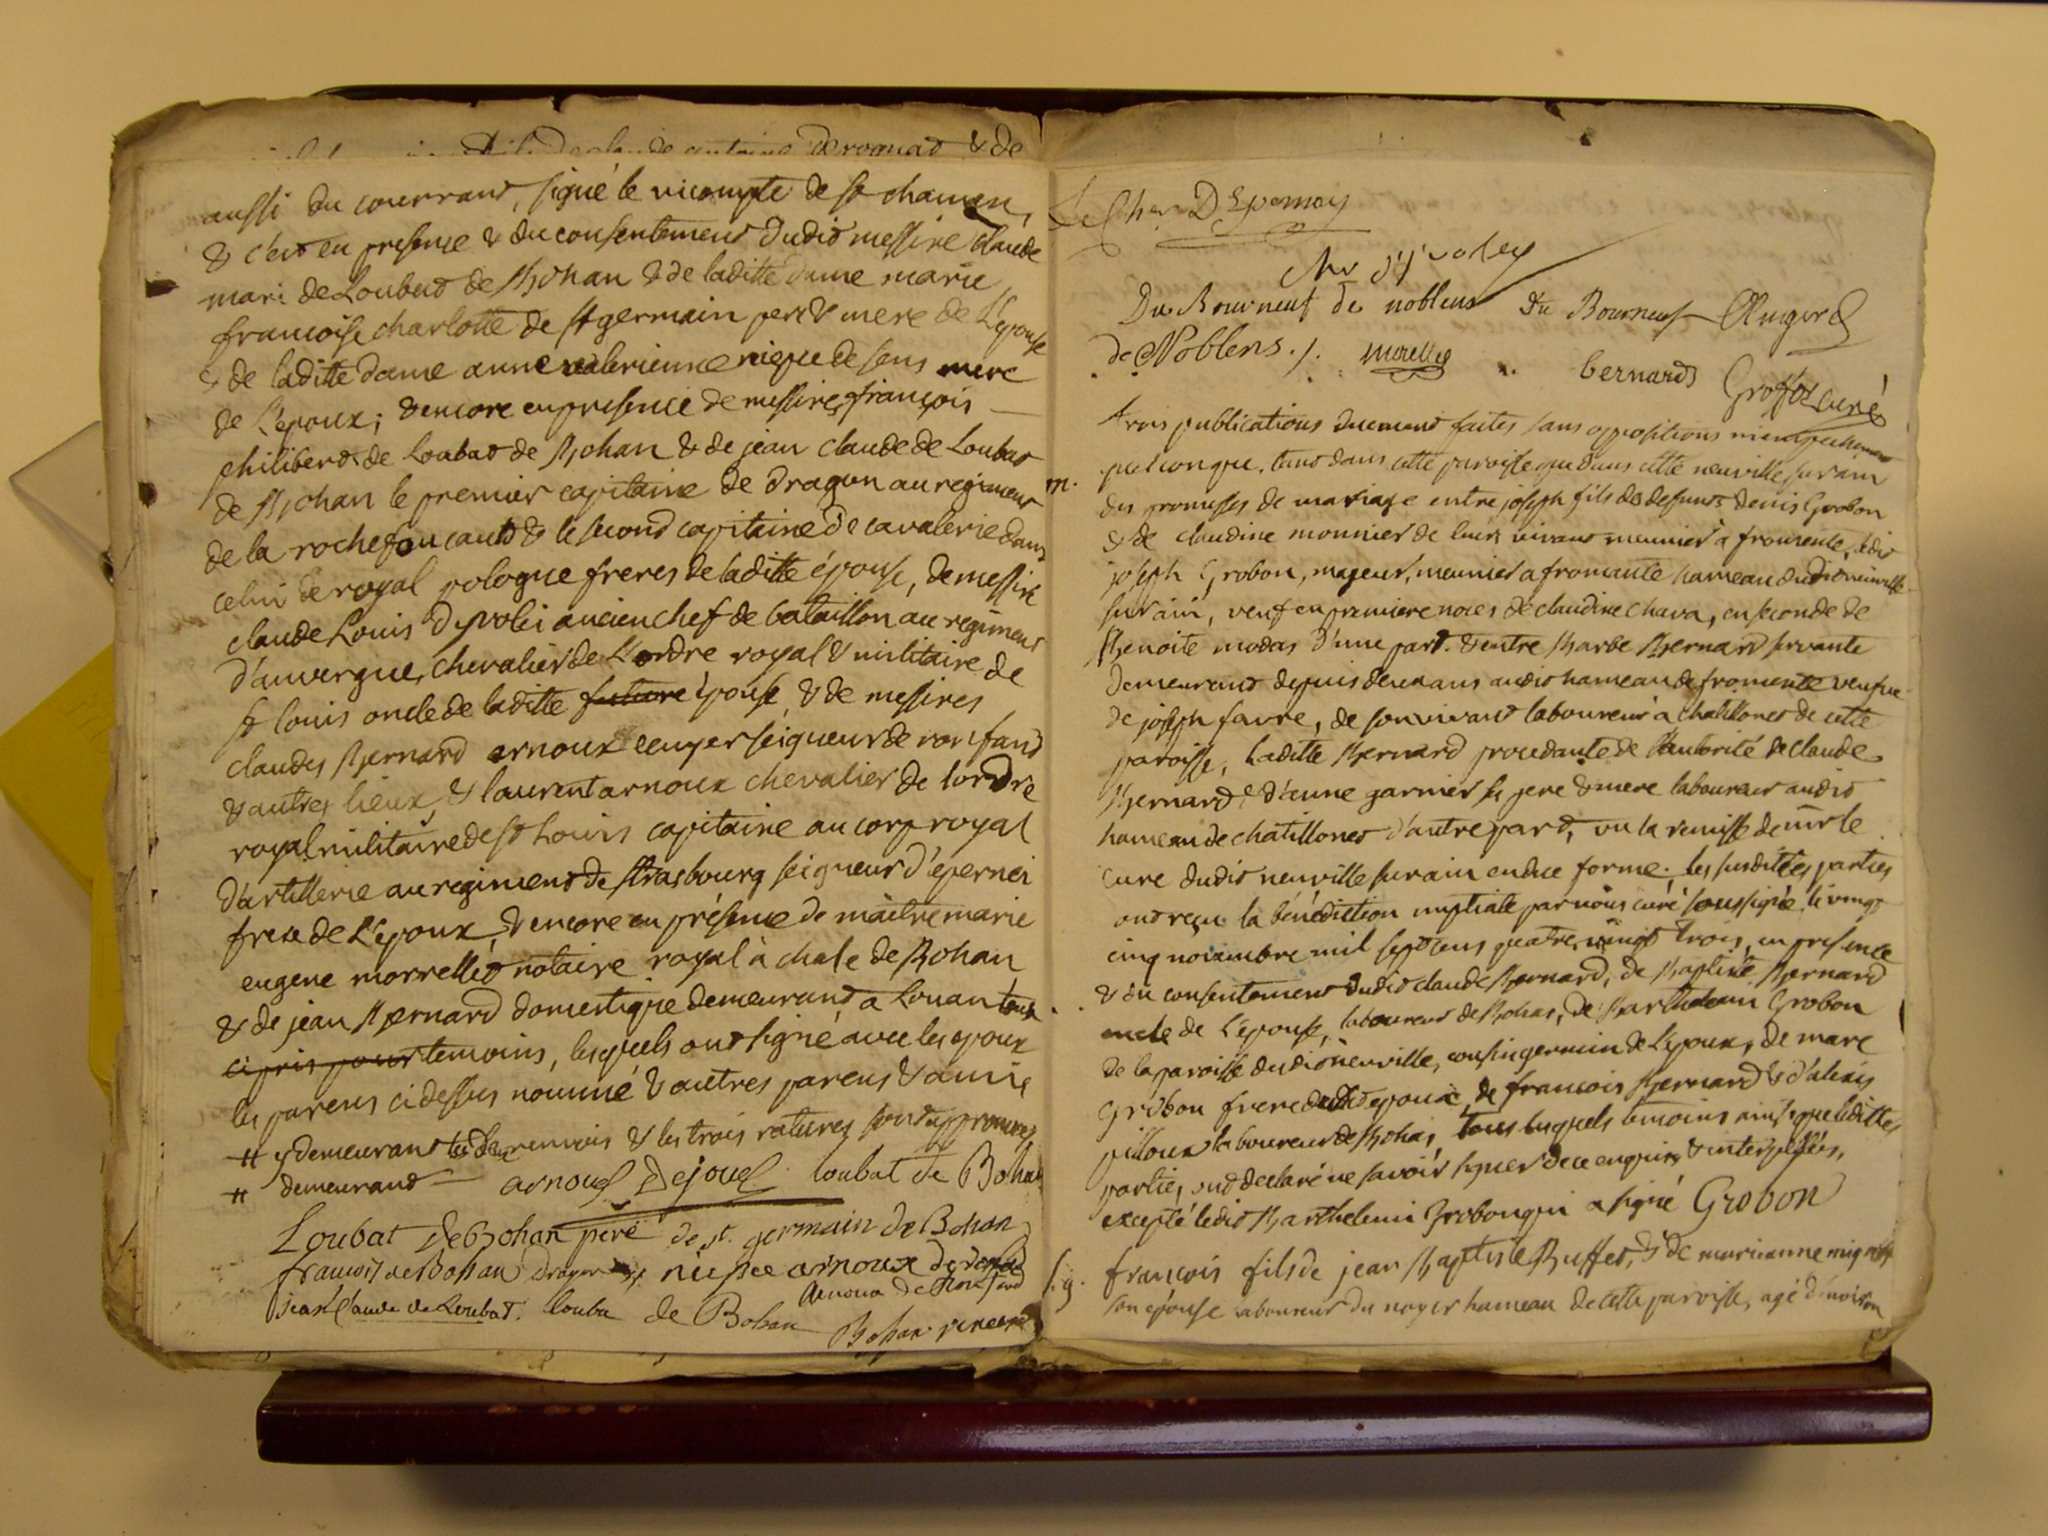 aussi du courrant, signé le vicompte de st chamen,
& c'est en presence & du consentement dudit messire claude
mari de Loubat de Bohan & de laditte dame marie
francoise charlotte de st germain pere & mere de L'epouse
& de laditte dame anne valerienne niepce de sens mere
de L'epoux; & encore en presence de messires françois
philibert de Loubat de Bohan & de jean claude de Loubat
de Bohan le premier capitaine de dragon au regiment
de la rochefoucault & le second capitaine de cavalerie dans
celui de royal pologne freres de laditte épouse, de messire
claude Louis Dyvolei ancien chef de bataillon au regiment
d'auvergne, chevalier de L'ordre royal & militaire de
st louis oncle de laditte future épouse, & de messires
claudes Bernard arnoux ecuyer seigneur de ronfand
& autres lieux, & laurent arnoux chevalier de lordre
royal militaire de st Louis capitaine au corp royal
d'artillerie au regiment de strasbourg seigneur d'épernei
frere de L'epoux, & encore en présence de maitre marie
eugene morrellet notaire royal à chale de Bohan
& de jean Bernard domestique demeurant a Louan tous
ci pris pour temoins, lesquels ont signé avec les epoux
les parens ci dessus nommé & autres parens & amis
# y demeurant les deux renvois & les trois ratures sont approuvés
# demeurant arnoux Dejouel loubat de Bohan
Loubat de Bohan pere de st. germain de Bohan
francois de Bohan dragon niepce arnoux de
arnoux de Ronfand
jean Claude de Loubat. louba de Bohan
Bohan
Le Cher DEpernay
Cher d'yvoley
Du Bourneuf de noblens Du Bourneuf
de Noblens ./. bernard
curé
trois publications duement faites sans oppositions ni empechement
quelconque, tant dans cette paroisse que dans celle neuville sur ain
m. des promesses de mariage entre joseph fils de defunts denis Grobon
& de claudine monnier de leurs vivant meunier à fromente, ledit
joseph Grobon, majeur, meunier a fromante hameau dudit neuville
sur ain, veuf en premiere noces de claudine chava, en seconde de
Benoite modas d'une part. & entre Barbe Bernard servante
demeurant depuis deux ans audit hameau de fromente veufve
de joseph favre, de son vivant laboureur à chatillonet de cette
paroisse, Laditte Bernard procedante de l'autorité de claude
Bernard & d'anne garnier ses pere & mere laboureur audit
hameau de chatillonet d'autre part, vu la remisse de mr le
curé dudit neuville sur ain en due forme; les susdittes parties
ont reçu la bénédiction nuptiale par nous curé soussigné le vingt
cinq novembre mil sept cens quatre vingt trois, en presence
& du consentement dudit claude Bernard, de Baptiste Bernard
oncle de L'epouse, laboureur de Bohas, de Barthelemi Grobon
de la paroisse dudit neuville, cousin germain de L'epoux, de marc
Grobon frere dudit epoux, de francois Bernard & d'alexis
pilloux laboureur de Bohas, tous lesquels temoins ainsi que lesdittes
parties ont declaré ne savoir signer de ce enquis & interpellés,
excepté ledit Barthelemi Grobon qui a signé Grobon
francois fils de jean Baptiste Buffet, & de marianne
son epouse laboureur du noyer hameau de cette paroisse, agé d'environ